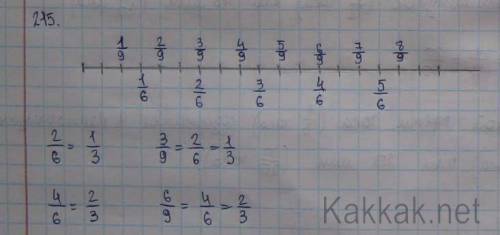 215.
1/9 2/9 3/9 4/9 5/9 6/9 7/9 8/9
1/6 2/6 3/6 4/6 5/6
2/6 = 1/3 3/9 = 2/6 = 1/3
4/6 = 2/3 6/9 = 4/6 = 2/3
Kakkak.net